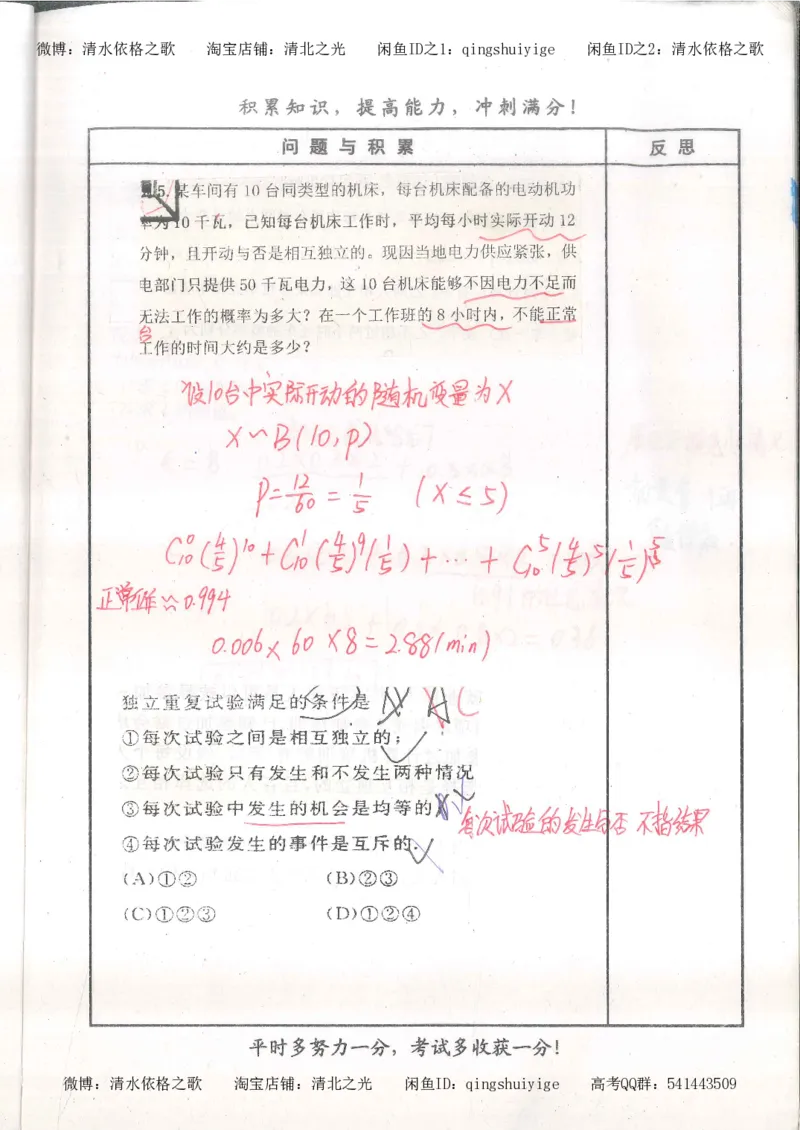 微博：清水依格之歌 淘宝店铺：清北之光 闲鱼ID之1：qingshuiyige 闲鱼ID之2：清水依格之歌
积累知识，提高能力，冲刺满分！
问题与积累 反思
5.某车间有 10 台同类型的机床，每台机床配备的电动机功
率为 10 千瓦，己知每台机床工作时，平均每小时实际开动 12
分钟，且开动与否是相互独立的。现因当地电力供应紧张，供
电部门只提供 50 千瓦电力，这 10 台机床能够不因电力不足而
无法工作的概率为多大？在一个工作班的 8 小时内，不能正常
台
工作的时间大约是多少？
设10台中实际开动的随机变量为X
X~B(10,P)
P=12/60=1/5 (X≤5)
C₁₀⁰(4/5)¹⁰+C₁₀¹(4/5)⁹(1/5)+…+C₁₀⁵(4/5)⁵(1/5)⁵
正常工作≈0.994
0.006×60×8=2.88(min)
独立重复试验满足的条件是 C
①每次试验之间是相互独立的；
②每次试验只有发生和不发生两种情况
③每次试验中发生的机会是均等的
每次试验的发生与否 不指结果
④每次试验发生的事件是互斥的.
(A)①② (B)②③
(C)①②③ (D)①②④
平时多努力一分，考试多收获一分！
微博：清水依格之歌 淘宝店铺：清北之光 闲鱼ID：qingshuiyige 高考QQ群：541443509